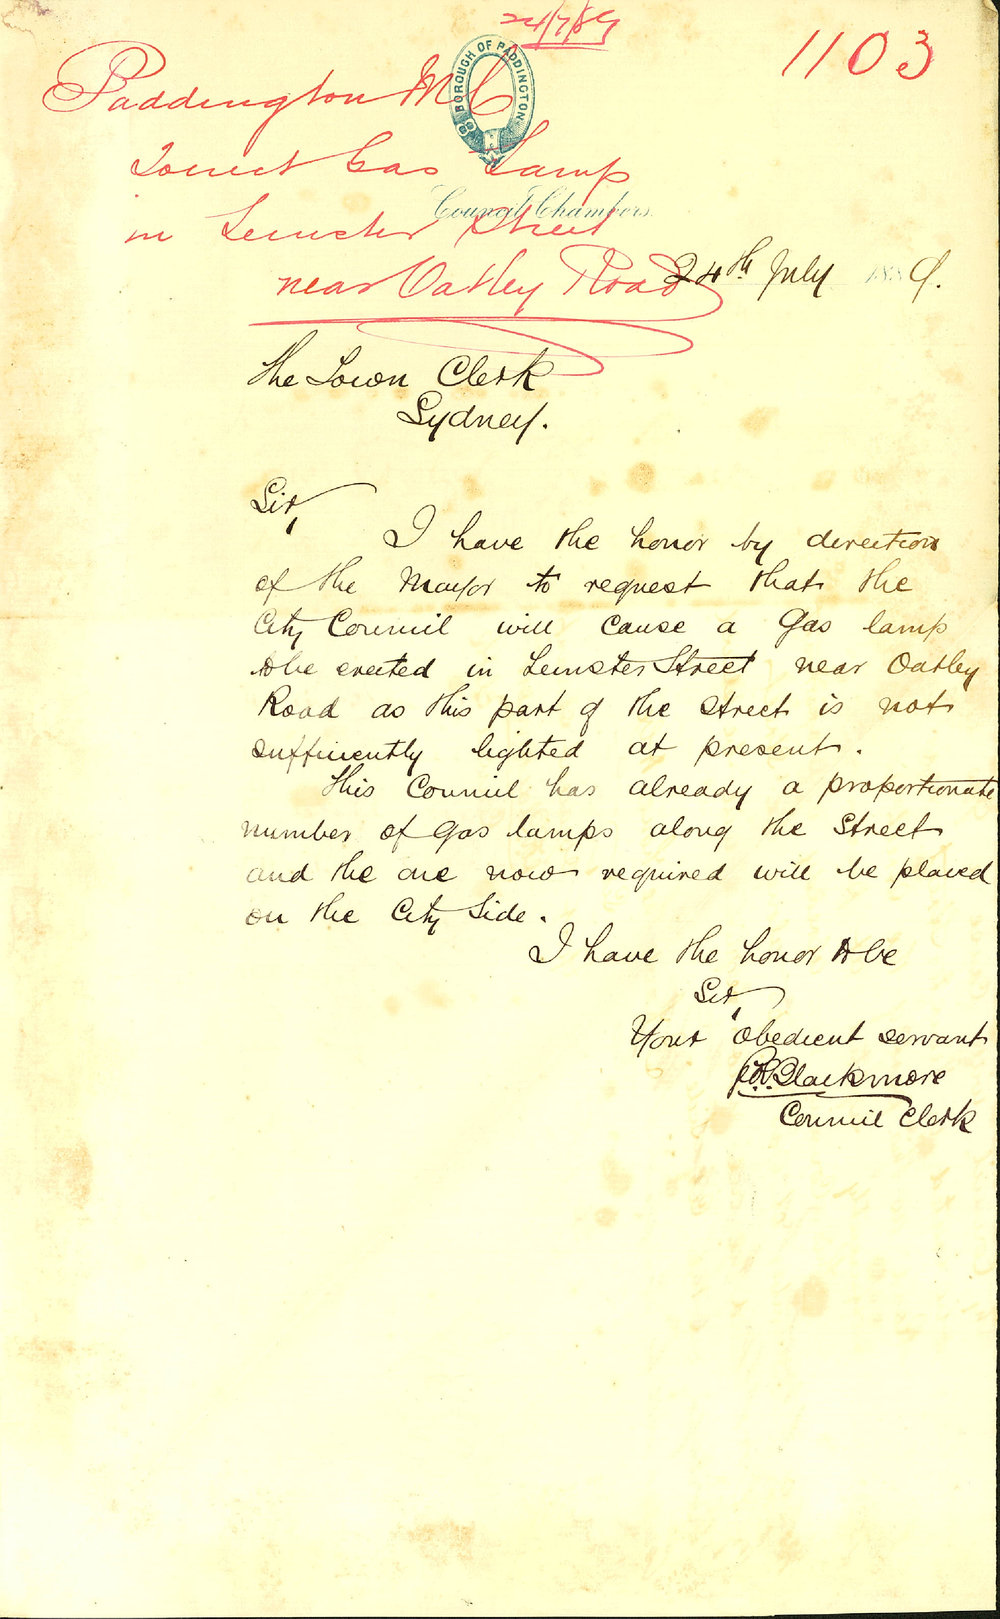 24/7/89
1103
BOROUGH OF PADDINGTON
Paddington M C
to erect Gas Lamp
in Leinster Street
near Oatley Road
Council Chambers,
24th July 1889.
The Town Clerk
Sydney.
Sir,
I have the honor by direction
of the Mayor to request that the
City Council will cause a Gas lamp
to be erected in Leinster Street near Oatley
Road as this part of the Street is not
sufficiently lighted at present.
This Council has already a proportionate
number of Gas lamps along the Street
and the one now required will be placed
on the City Side.
I have the honor to be
Sir,
Your obedient servant
Blackmore
Council Clerk